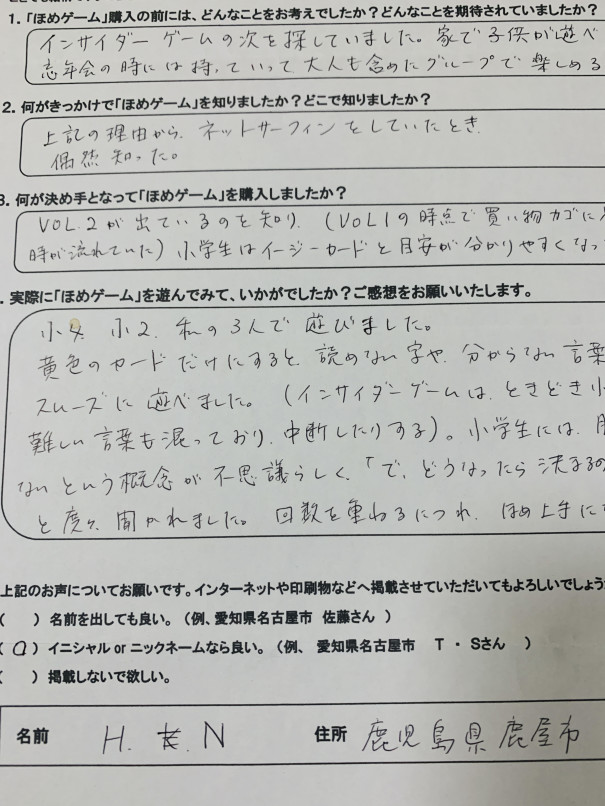 1. 「ほめゲーム」購入の前には、どんなことをお考えでしたか？どんなことを期待されていましたか？
インサイダーゲームの次を探していました。家で子供が遊べ
忘年会の時には持っていって大人も含めたグループで楽しめる
2. 何がきっかけで「ほめゲーム」を知りましたか？どこで知りましたか？
上記の理由から、ネットサーフィンをしていたとき、
偶然知った。
3. 何が決め手となって「ほめゲーム」を購入しましたか？
VOL.2が出ているのを知り、(VOL1の時点で買い物カゴに
時が流れていた) 小学生はイージーカードと目安が分かりやすくなっ
. 実際に「ほめゲーム」を遊んでみて、いかがでしたか？ご感想をお願いいたします。
小4、小2、私の3人で遊びました。
黄色のカードだけにすると、読めない字や、分からない言葉
スムーズに遊べました。(インサイダーゲームは、ときどき小
難しい言葉も混っており、中断したりする)。小学生には、
ないという概念が不思議らしく、「で、どうなったら決まるの
と度々聞かれました。回数を重ねるにつれ、ほめ上手に
上記のお声についてお願いです。インターネットや印刷物などへ掲載させていただいてもよろしいでしょう
( ) 名前を出しても良い。(例、愛知県名古屋市 佐藤さん )
( O ) イニシャル or ニックネームなら良い。(例、 愛知県名古屋市 T ・ Sさん )
( ) 掲載しないで欲しい。
名前 H. N 住所 鹿児島県鹿屋市